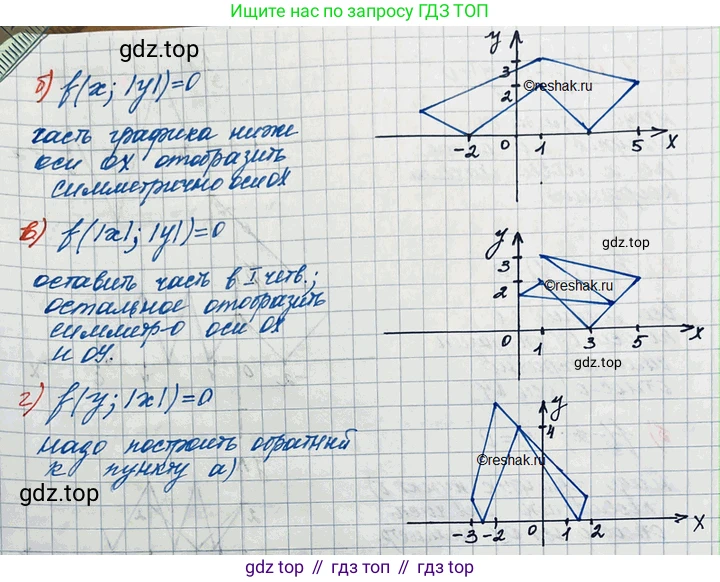 Ищите нас по запросу ГДЗ ТОП
gdz.top
б) f(x; |y|)=0
часть графика ниже
оси ОХ отобразить
симметрично оси ОХ
y
3
2
©reshak.ru
-2
0
1
5
x
в) f(|x|; |y|)=0
оставить часть в I четв.;
остальное отобразить
симметр-о оси ОХ
и ОУ.
y
gdz.top
3
2
©reshak.ru
0
1
3
5
x
г) f(y; |x|)=0
надо построить обратный
к пункту а)
gdz.top
y
4
©reshak.ru
-3
-2
0
1
2
x
gdz.top // гдз.топ // gdz.top